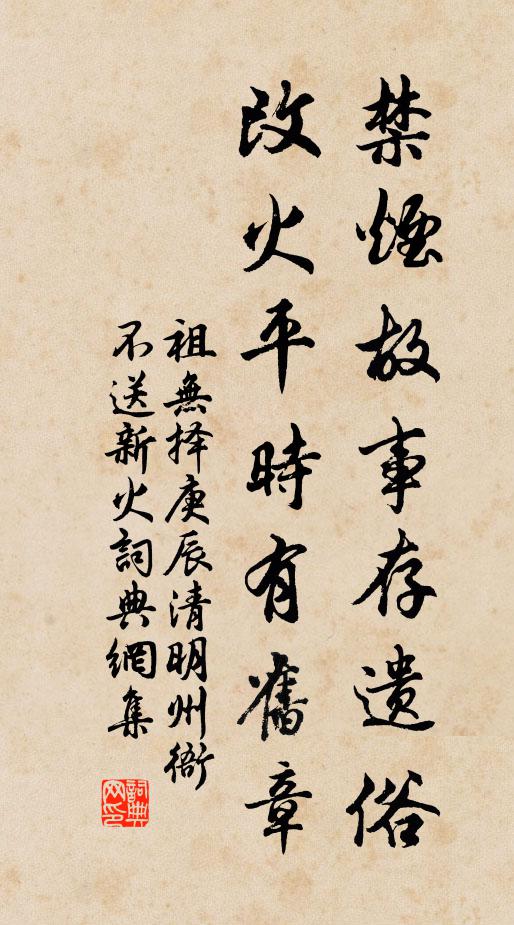 禁煙故事存遺俗
改火平時有舊章
祖無择庚辰清明州衙
不送新火詞典網集
詞典網印